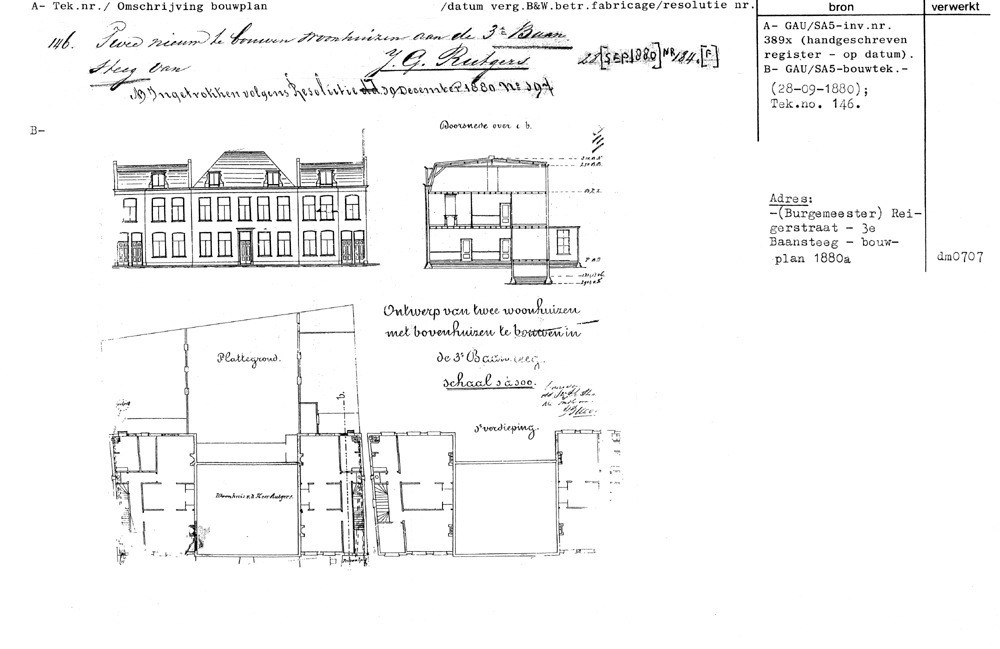 A- Tek.nr./ Omschrijving bouwplan
/datum verg.B&W.betr.fabricage/resolutie nr.
bron
verwerkt
146. Twee nieuw te bouwen woonhuizen aan de 3e Baan
steeg van J. G. Rutgers. 28 [SEP 1880] No 184. [F.]
NB Ingetrokken volgens Resolutie dd. 30 December 1880 No 197
A- GAU/SA5-inv.nr.
389x (handgeschreven
register - op datum).
B- GAU/SA5-bouwtek.-
(28-09-1880);
Tek.no. 146.
Adres:
-(Burgemeester) Rei-
gerstraat - 3e
Baansteeg - bouw-
plan 1880a
dm0707
B-
Doorsnede over a b.
Ontwerp van twee woonhuizen
met bovenhuizen te bouwen in
de 3e Baansteeg.
schaal 1 à 100.
Plattegrond.
b.
1e verdieping.
Woonhuis v.d. Heer Rutgers.